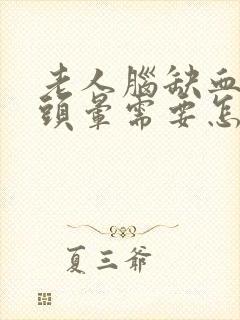 老人腦缺血
頭暈需要怎
夏三爺